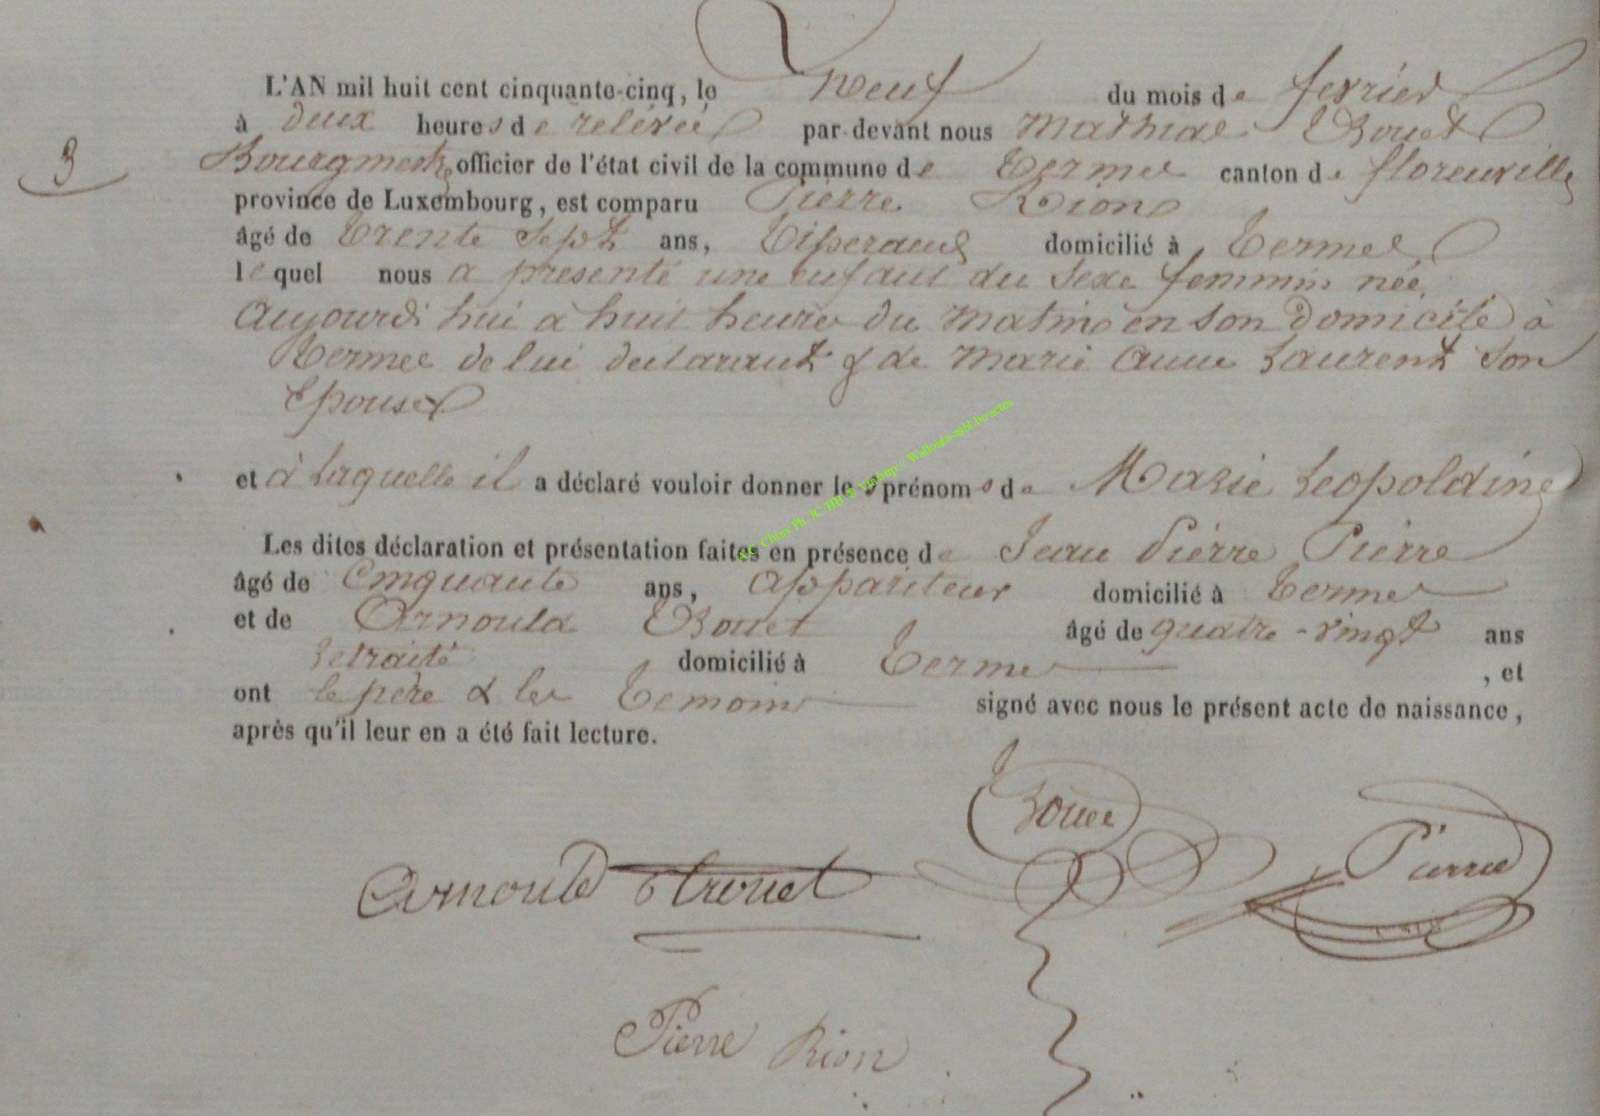 L'AN mil huit cent cinquante-cinq, le neuf du mois de fevrier
à deux heures de relevée par-devant nous Mathias Bouet
3
Bourgmestre officier de l'état civil de la commune de Termes canton de florenville
province de Luxembourg, est comparu Pierre Rion
âgé de trente sept ans, Tisserand domicilié à Termes
lequel nous a presenté une enfant du sexe feminin née
aujourd'hui à huit heures du matin en son domicile à
Termes de lui declarant & de marie anne Laurent son
Epouse
et à laquelle il a déclaré vouloir donner les prénoms de Marie Leopoldine
Les dites déclaration et présentation faites en présence de Jean Pierre Pierre
âgé de Cinquante ans, appariteur domicilié à Termes
et de Arnould Bouet âgé de quatre-vingt ans
retraité domicilié à Termes , et
ont le pere & les Temoins signé avec nous le présent acte de naissance,
après qu'il leur en a été fait lecture.
Bouet
Pierre
Arnould
Pierre Rion